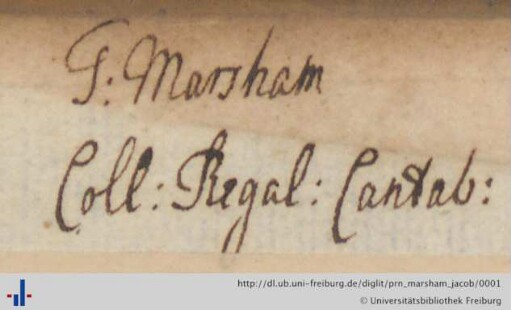 J: Marsham
Coll: Regal: Cantab:
http://dl.ub.uni-freiburg.de/diglit/prn_marsham_jacob/0001
© Universitätsbibliothek Freiburg